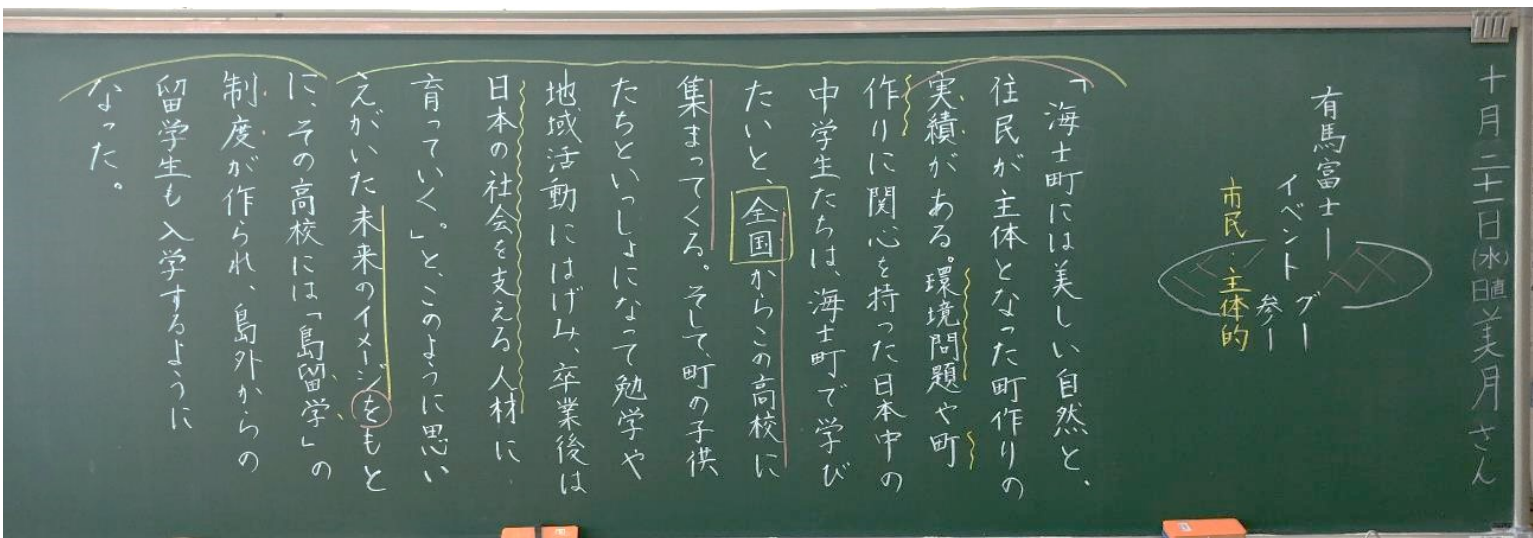 十月二十一日(水)日直美月さん
有馬富士ー
イベント
グー
参ー
市民・主体的
「海士町には美しい自然と、
住民が主体となった町作りの
実績がある。環境問題や町
作りに関心を持った日本中の
中学生たちは、海士町で学び
たいと、全国からこの高校に
集まってくる。そして、町の子供
たちといっしょになって勉学や
地域活動にはげみ、卒業後は
日本の社会を支える人材に
育っていく。」と、このように思い
えがいた未来のイメージをもと
に、その高校には「島留学」の
制度が作られ、島外からの
留学生も入学するように
なった。